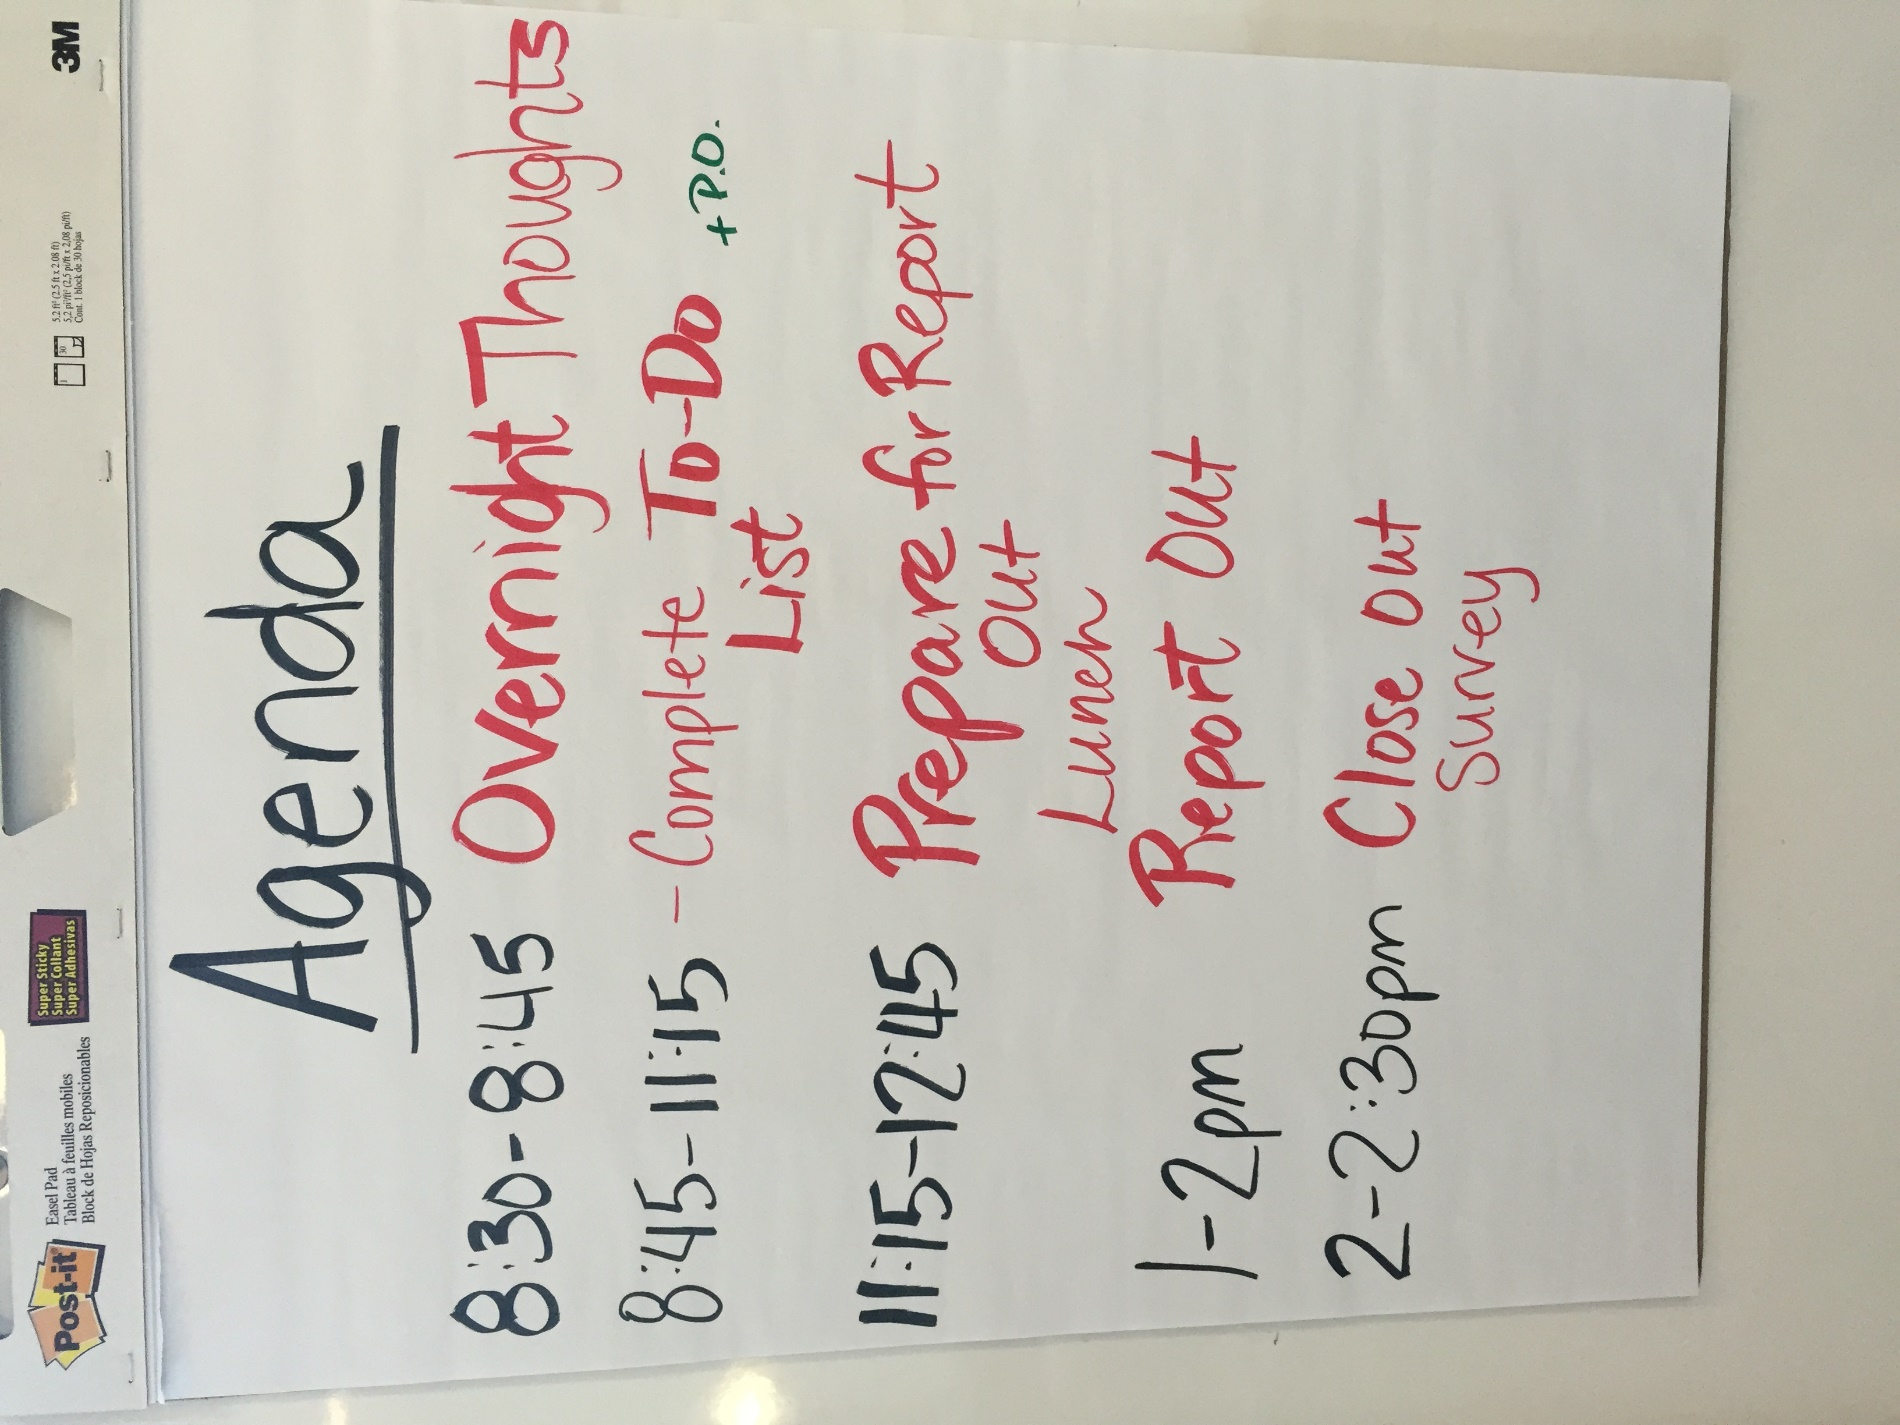 Post-it
Easel Pad
Tableau à feuilles mobiles
Block de Hojas Reposicionables
Super Sticky
Super Collant
Super Adhesivas
30
5.2 ft² (2.5 ft x 2.08 ft)
5,2 pi²/ft² (2,5 pi/ft x 2,08 pi/ft)
Cont. 1 block de 30 hojas
3M
Agenda
8:30-8:45 Overnight Thoughts
8:45-11:15 - Complete To-Do + P.O.
List
11:15-12:45 Prepare for Report
Out
Lunch
1-2pm Report Out
2-2:30pm Close Out
Survey